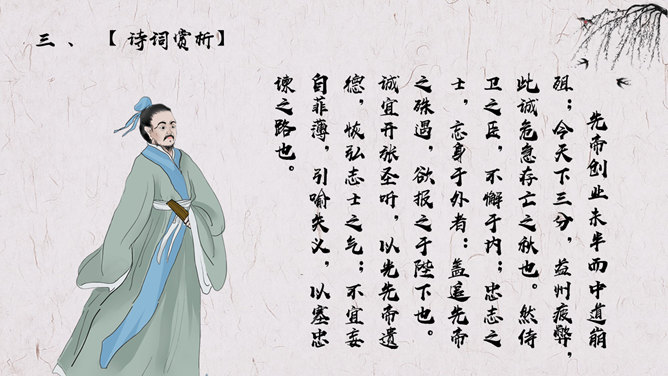 三、【诗词赏析】
先帝创业未半而中道崩
殂；今天下三分，益州疲弊，
此诚危急存亡之秋也。然侍
卫之臣，不懈于内；忠志之
士，忘身于外者：盖追先帝
之殊遇，欲报之于陛下也。
诚宜开张圣听，以光先帝遗
德，恢弘志士之气；不宜妄
自菲薄，引喻失义，以塞忠
谏之路也。